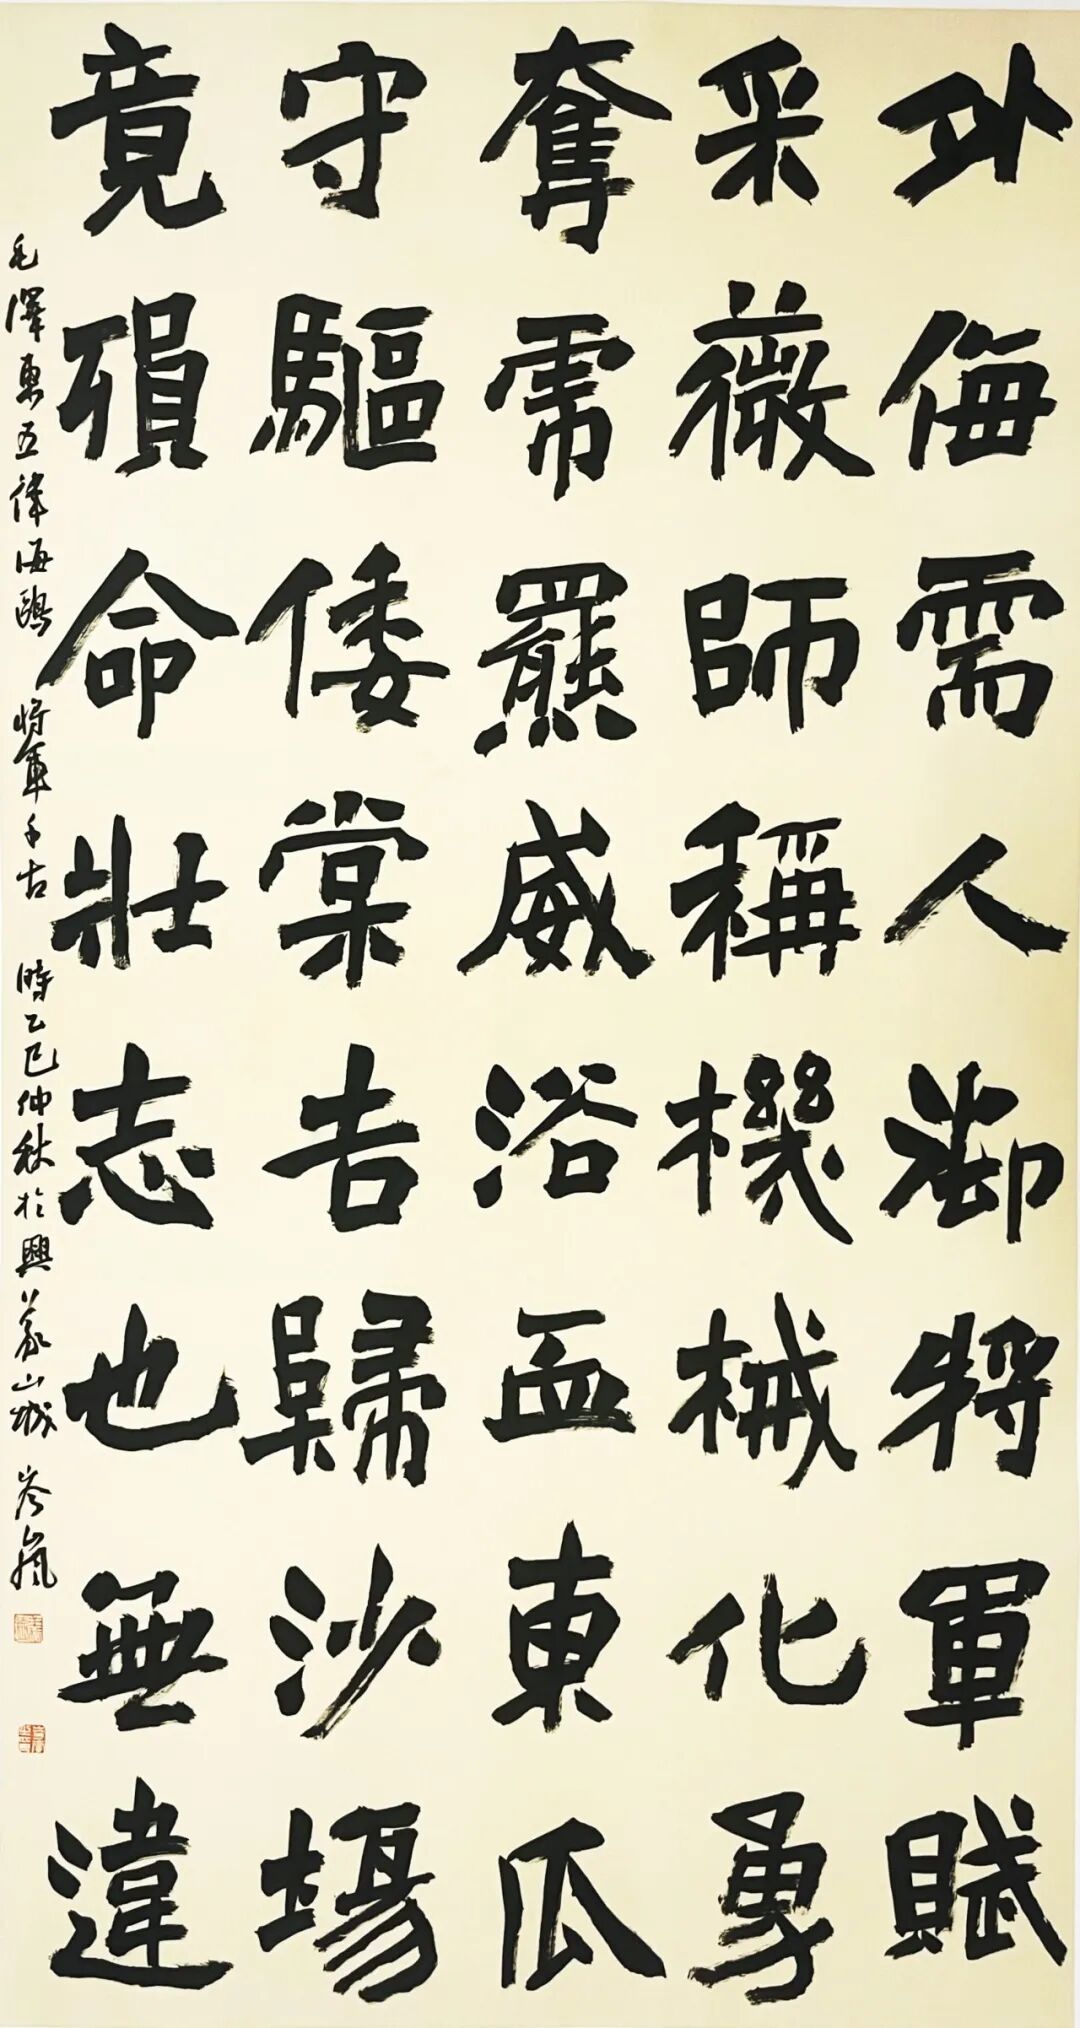 外侮需人御將軍賦
采薇師稱機械化勇
奪虎羆威浴血東瓜
守驅倭棠吉歸沙場
竟殞命壯志也無違
毛澤東五律海鷗將軍千古 時乙巳仲秋於興義山城 岑嵐